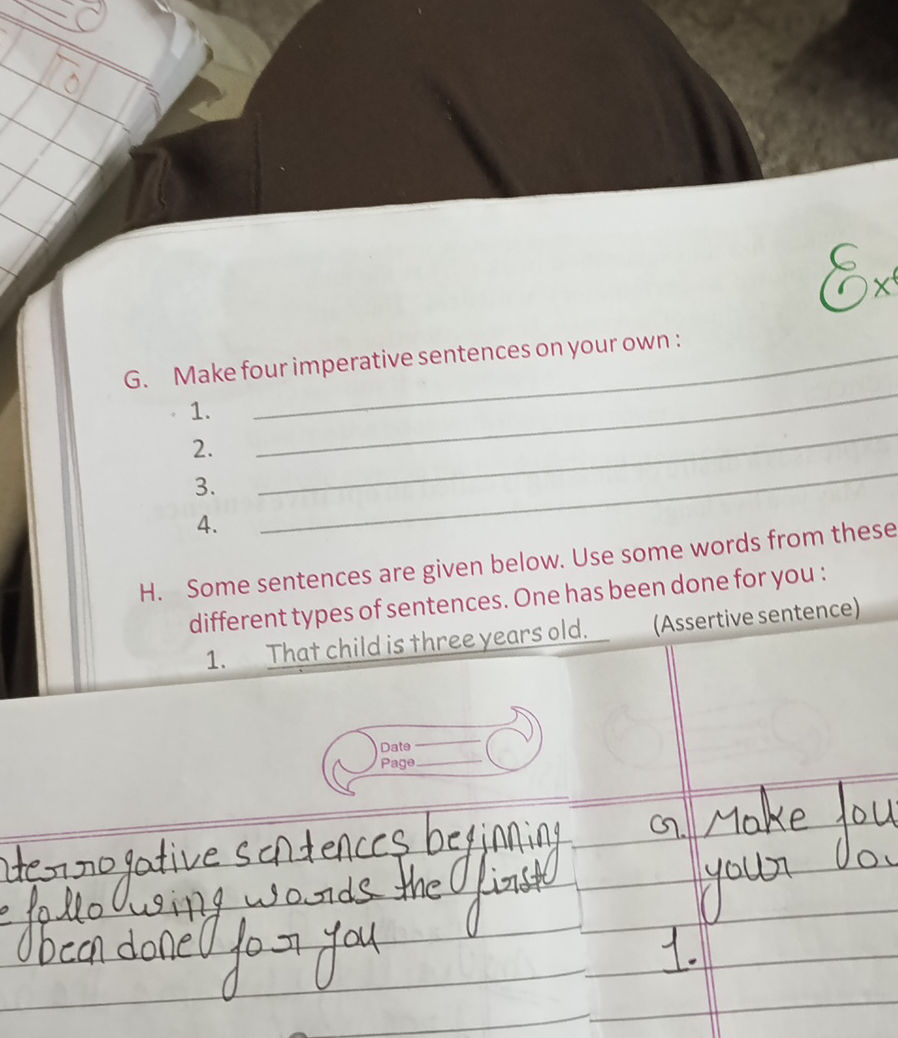 To
G. Make four imperative sentences on your own :
1.
2.
3.
4.
H. Some sentences are given below. Use some words from these
different types of sentences. One has been done for you :
1. That child is three years old. (Assertive sentence)
Date
Page
sentences beginning
following words the first
been done for you
G. Make fou
your
1.